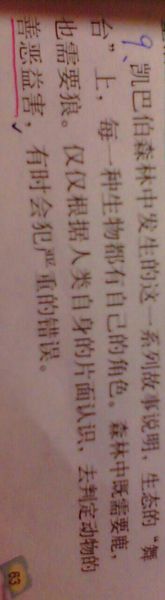 9、凯巴伯森林中发生的这一系列故事说明，生态的“舞
台”上，每一种生物都有自己的角色。森林中既需要鹿，
也需要狼。仅仅根据人类自身的片面认识，去判定动物的
善恶益害，有时会犯严重的错误。
63